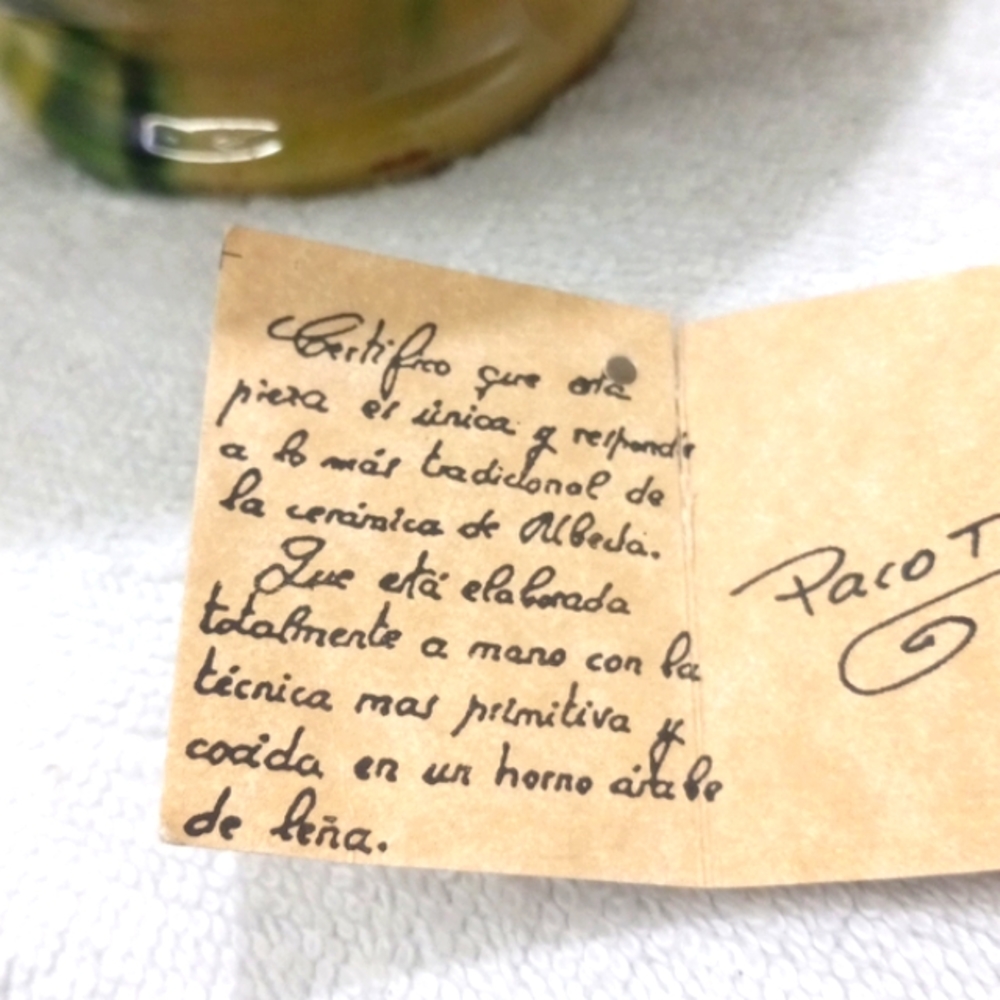 Certifico que esta
pieza es única y responde
a lo más tradicional de
la cerámica de Úbeda.
Que está elaborada
totalmente a mano con la
técnica mas primitiva y
cocida en un horno árabe
de leña.
Paco T